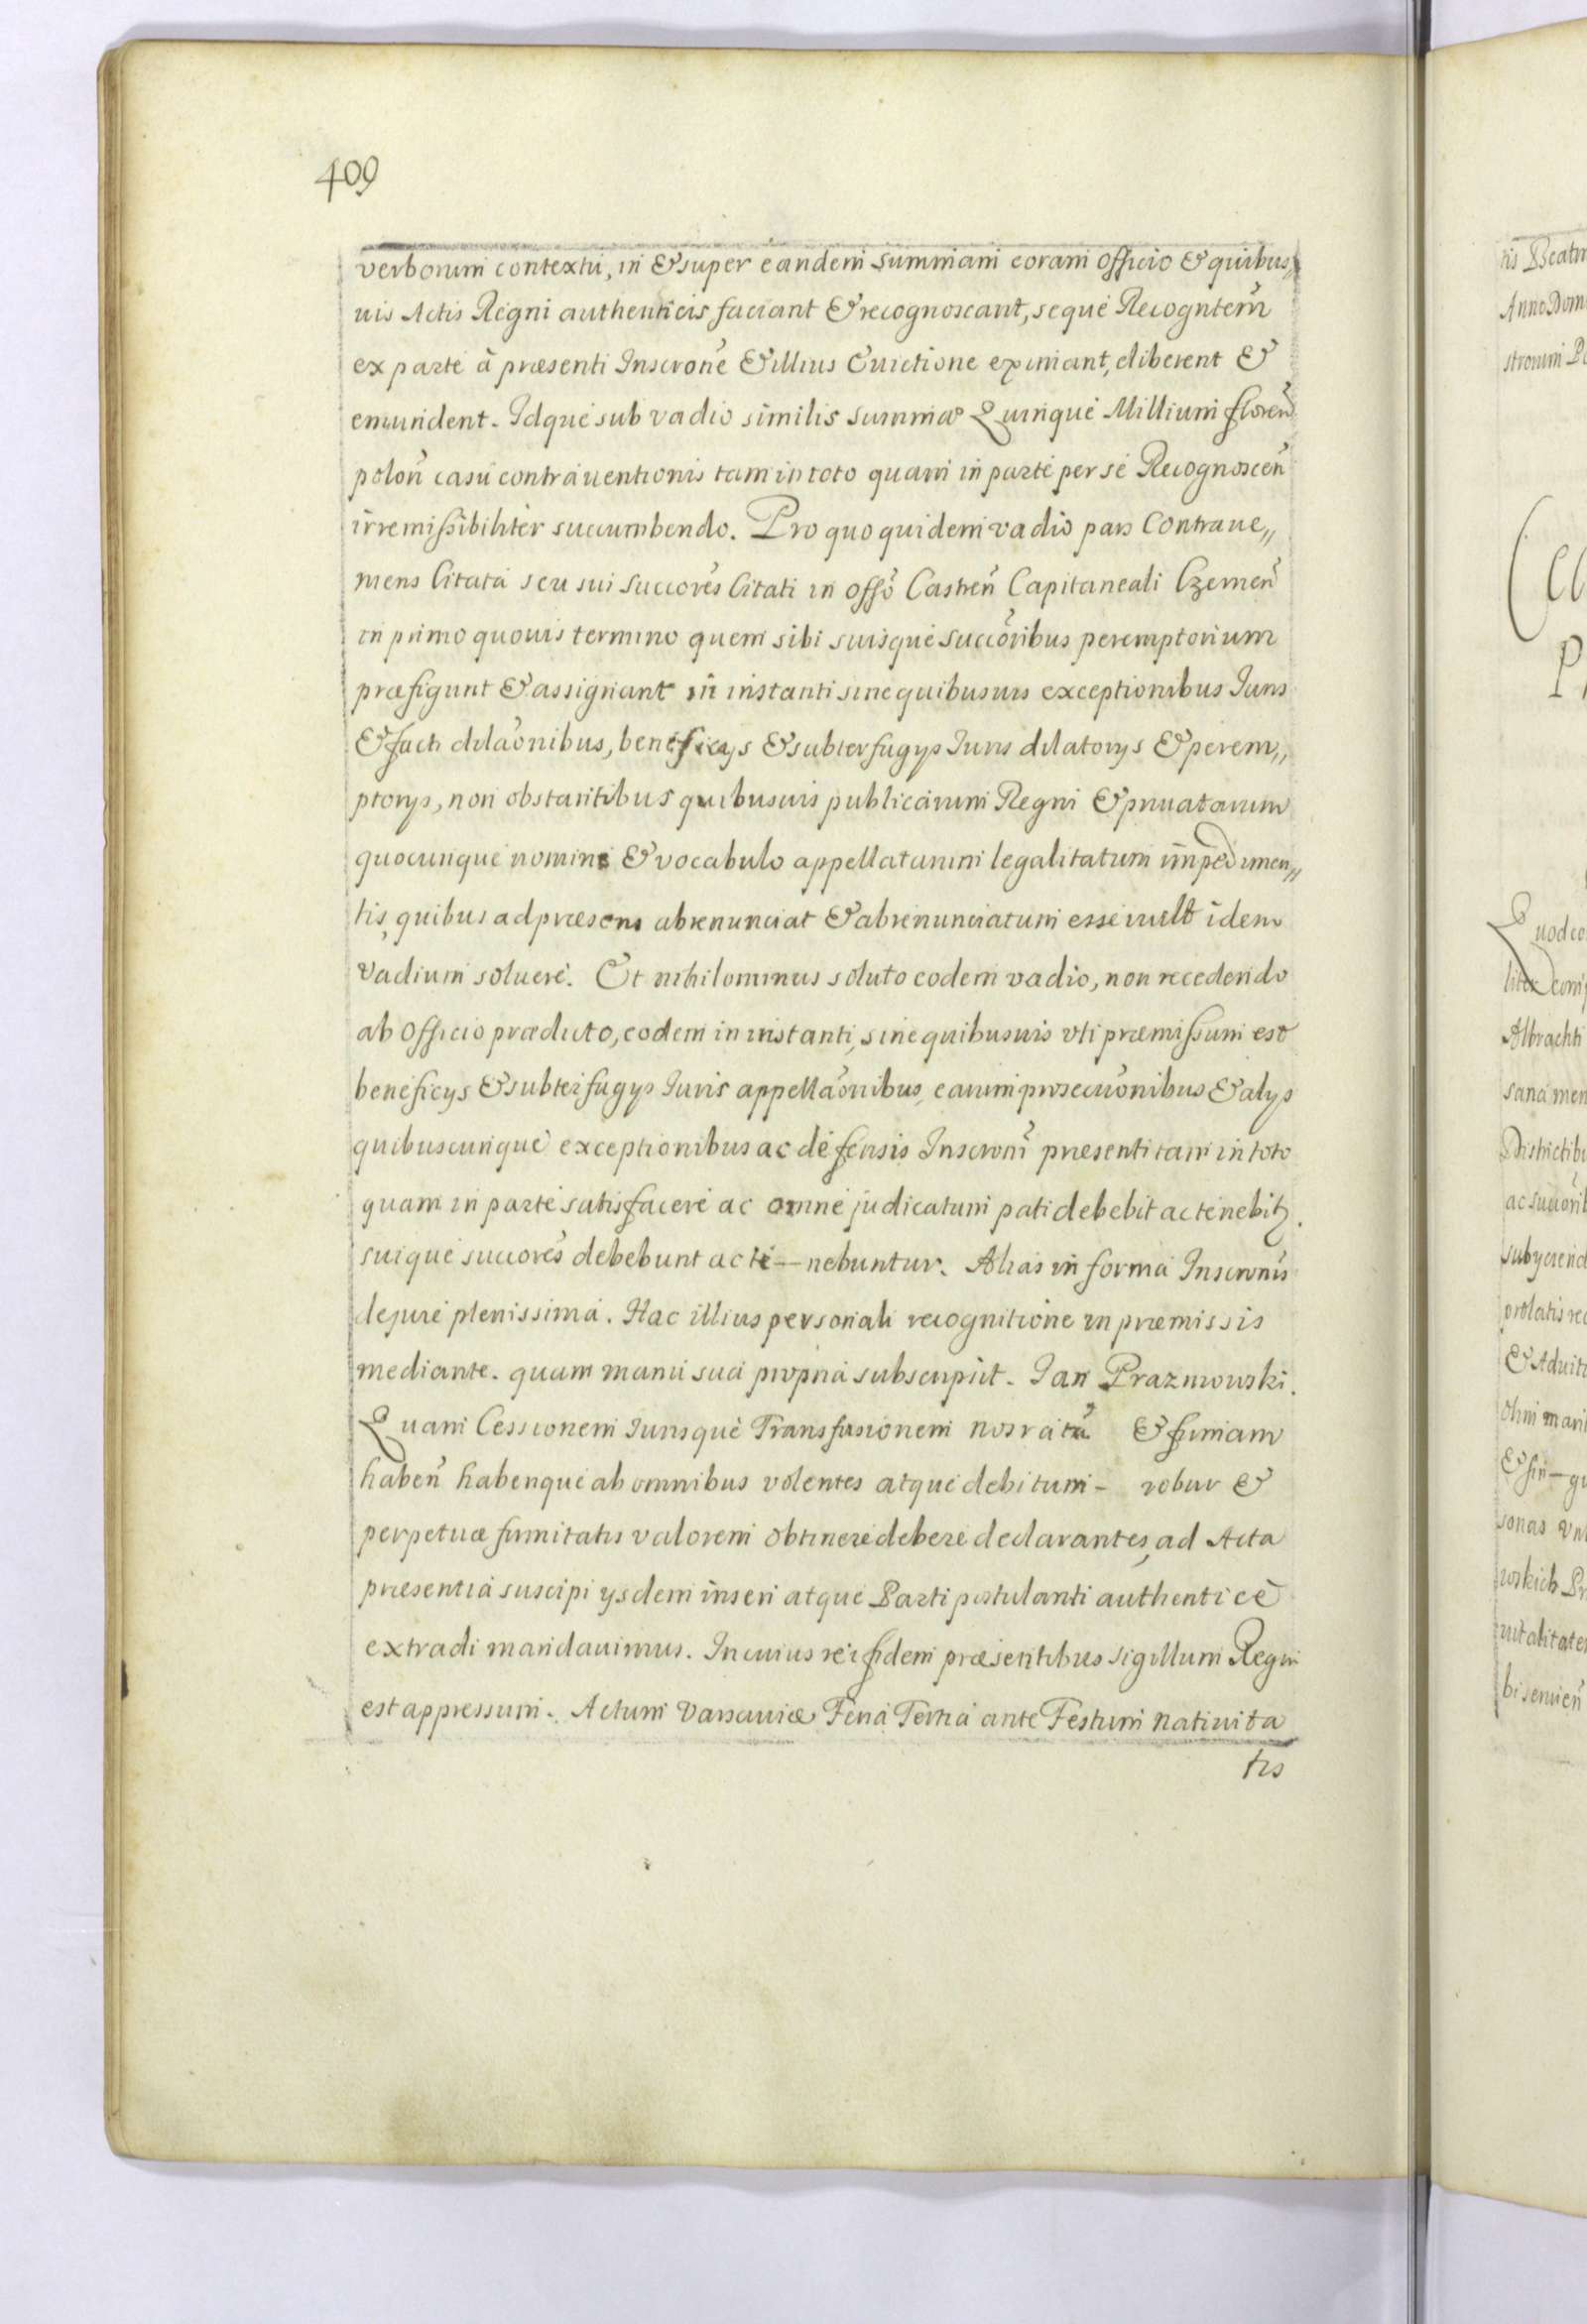 409
verborum contextu, in & super eandem summam coram officio & quibus„
uis Actis Regni authenticis faciant & recognoscant, seque Recogntem̃
ex parte à præsenti Inscrõne & illius Euictione eximant, liberent &
emundent. Idque sub vadio similis summæ Quinque Millium floreñ
poloñ casu contrauentionis tam in toto quam in parte per se Recognosceñ
irremissibiliter succumbendo. Pro quo quidem vadio pars Contraue„
niens Citata seu sui Succorẽs Citati in Offõ Castreñ Capitaneali Czerneñ
in primo quouis termino quem sibi suisque succõribus peremptorium
præfigunt & assignant in instanti sine quibusuis exceptionibus Juris
& facti dilaõnibus, beneficys & subterfugys Juris dilatorys & perem„
ptorys, non obstantibus quibusuis publicarum Regni & priuatarum
quocunque nomine & vocabulo appellatarum legalitatum impedimen„
tis, quibus ad præsens abrenunciat & abrenunciatum esse vult idem
Vadium soluere. Et nihilominus soluto eodem vadio, non recedendo
ab Officio prædicto, eodem in instanti, sine quibusuis vti præmissum est
beneficys & subterfugys Juris appellaõnibus, earum prosecuõnibus & alys
quibuscunque exceptionibus ac defensis Inscrõni præsenti tam in toto
quam in parte satisfacere ac omne judicatum pati debebit ac tenebit.
suique succorẽs debebunt ac te—nebuntur. Alias in forma Inscrõnis
de jure plenissima. Hac illius personali recognitione in præmissis
mediante. quam manu sua propria subscripsit. Jan Prazmowski.
Quam Cessionem Jurisque Transfusionem nos ratã & firmam
habeñ haberique ab omnibus volentes atque debitum- robur &
perpetuæ firmitatis valorem obtinere debere declarantes, ad Acta
præsentia suscipi ysdem inseri atque Parti postulanti authenticè
extradi mandauimus. In cuius rei fidem præsentibus sigillum Regni
est appressum. Actum Varsauiæ Feria Tertia ante Festum Natiuita
tis